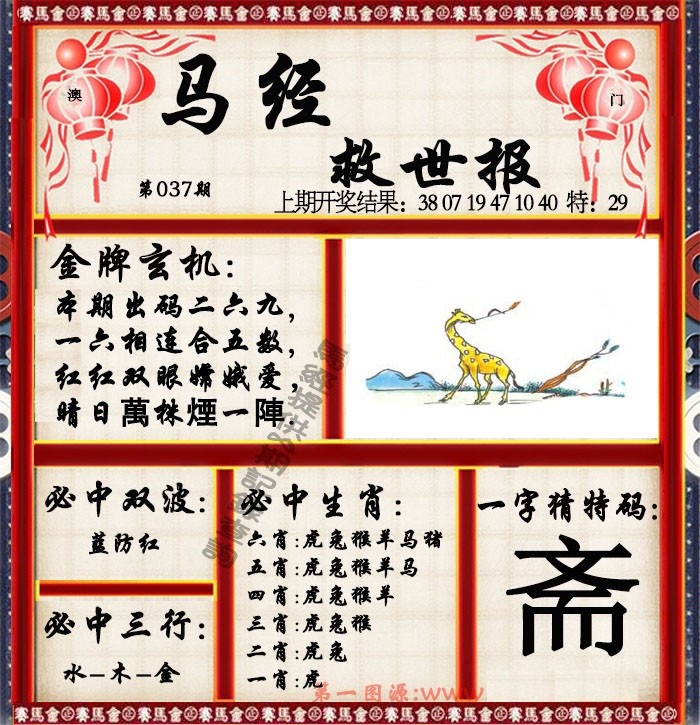 賽馬會㊣賽馬會㊣賽馬會㊣賽馬會㊣賽馬會㊣賽馬會㊣賽馬會
澳
门
马经
救世报
第037期
上期开奖结果：38 07 19 47 10 40 特：29
金牌玄机：
本期出码二六九，
一六相连合五数，
红红双眼嫦娥爱，
晴日萬株煙一陣.
必中双波：
蓝防红
必中三行：
水-木-金
必中生肖：
六肖:虎兔猴羊马猪
五肖:虎兔猴羊马
四肖:虎兔猴羊
三肖:虎兔猴
二肖:虎兔
一肖:虎
一字猜特码：
斋
第一图源:www